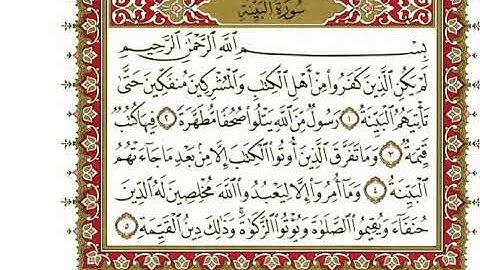 سُورَةُ البَيِّنَةِ
بِسْمِ اللَّهِ الرَّحْمَٰنِ الرَّحِيمِ
لَمْ يَكُنِ الَّذِينَ كَفَرُوا مِنْ أَهْلِ الْكِتَابِ وَالْمُشْرِكِينَ مُنفَكِّينَ حَتَّىٰ
تَأْتِيَهُمُ الْبَيِّنَةُ ١ رَسُولٌ مِّنَ اللَّهِ يَتْلُو صُحُفًا مُّطَهَّرَةً ٢ فِيهَا كُتُبٌ
قَيِّمَةٌ ٣ وَمَا تَفَرَّقَ الَّذِينَ أُوتُوا الْكِتَابَ إِلَّا مِن بَعْدِ مَا جَاءَتْهُمُ
الْبَيِّنَةُ ٤ وَمَا أُمِرُوا إِلَّا لِيَعْبُدُوا اللَّهَ مُخْلِصِينَ لَهُ الدِّينَ
حُنَفَاءَ وَيُقِيمُوا الصَّلَوٰةَ وَيُؤْتُوا الزَّكَوٰةَ وَذَٰلِكَ دِينُ الْقَيِّمَةِ ٥